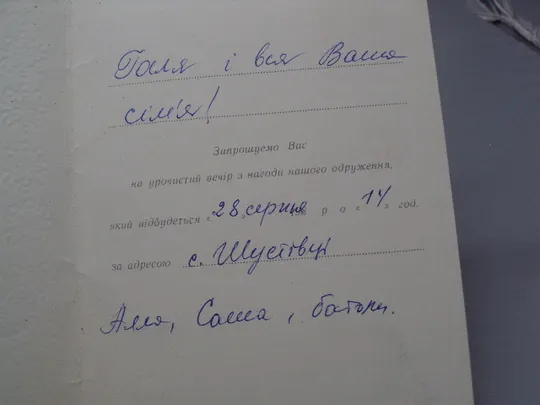 Галя і вся Ваша
сім'я!
Запрошуємо Вас
на урочистий вечір з нагоди нашого одруження,
який відбудеться « 28 » серпня р о « 14 » год.
за адресою с. Шустівці
Алла, Саша, батьки.